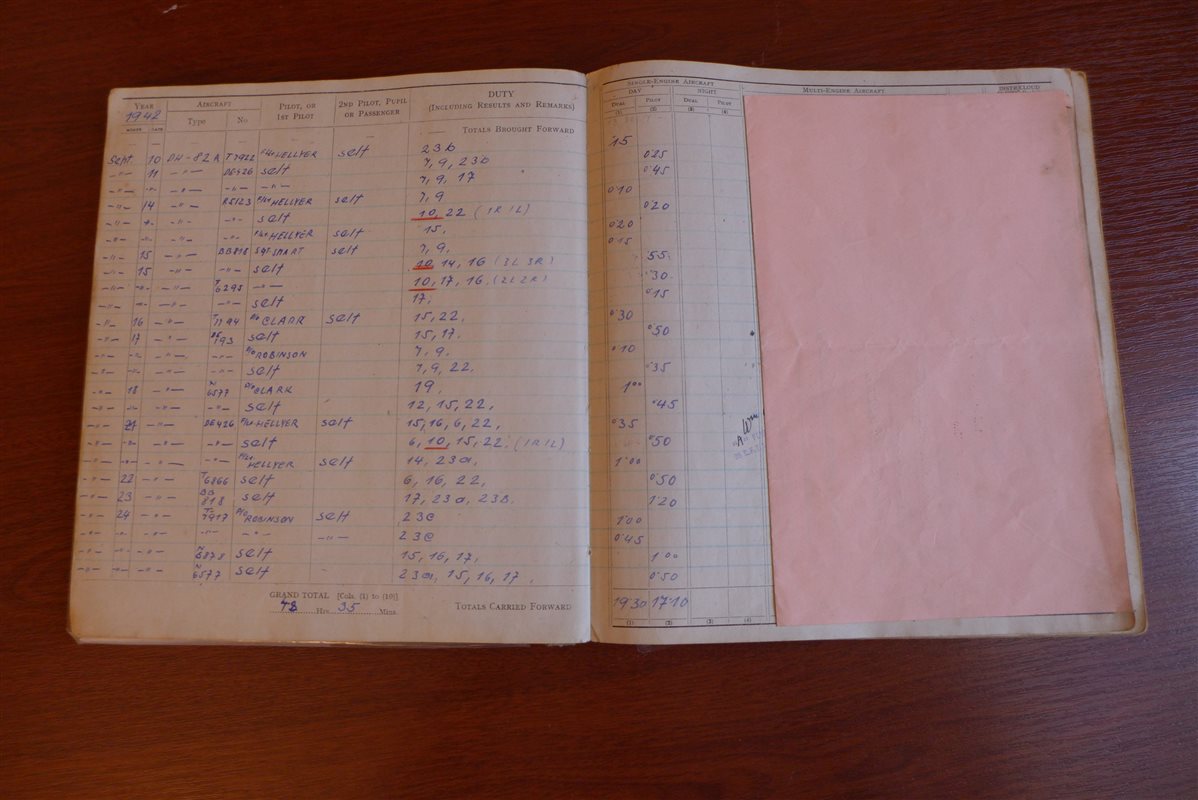 YEAR AIRCRAFT PILOT, OR 1ST PILOT 2ND PILOT, PUPIL OR PASSENGER DUTY (INCLUDING RESULTS AND REMARKS) SINGLE-ENGINE AIRCRAFT MULTI-ENGINE AIRCRAFT
1942 Type No DAY NIGHT
MONTH DATE DUAL PILOT DUAL PILOT
(1) (2) (3) (4)
TOTALS BROUGHT FORWARD
Sept 10 DH-82A T7922 HELLYER self 23b 15
-"- 11 -"- DE426 self 7, 9, 23b 0'25
-"- -"- -"- -"- -"- 7, 9, 17 0'45
-"- 14 -"- R5123 F/LT HELLYER self 7, 9 0'10
-"- -"- -"- -"- self 10, 22 (1R 1L) 0'20
-"- -"- -"- -"- F/LT HELLYER self 15, 0'20
-"- 15 -"- BB818 SGT SMART self 7, 9. 0'15
-"- 15 -"- -"- self 10, 14, 16 (3L 3R) 55
-"- -"- -"- 6295 -"- 10, 17, 16 (2L 2R) 30
-"- -"- -"- -"- self 17. 0'15
-"- 16 -"- CLARK self 15, 22. 0'30
-"- 17 -"- self 15, 17. 0'50
-"- -"- -"- -"- P/O ROBINSON 7, 9. 0'10
-"- -"- -"- -"- self 7, 9, 22. 0'35
-"- 18 -"- N 6577 P/O CLARK 19. 1°°
-"- -"- -"- -"- self 12, 15, 22, 0'45
-"- 21 -"- DE426 F/LT HELLYER self 15, 16, 6, 22, 0'35
-"- -"- -"- -"- self 6, 10, 15, 22, (1R 1L) 0'50
-"- -"- -"- -"- F/LT HELLYER self 14, 23a, 1'00
-"- 22 -"- T 6866 self 6, 16, 22, 0'50
-"- 23 -"- BB 818 self 17, 23a, 23B. 1'20
-"- 24 -"- 7417 P/O ROBINSON self 23C 1'00
-"- -"- -"- -"- -"- -"- 23C 0'45
-"- -"- -"- N 6878 self 15, 16, 17, 1°°
-"- -"- -"- N 6577 self 23a, 15, 16, 17, 0'50
GRAND TOTAL [Cols. (1) to (10)]
Hrs. 35 Mins. TOTALS CARRIED FORWARD 19'30 17'10
(1) (2) (3) (4)